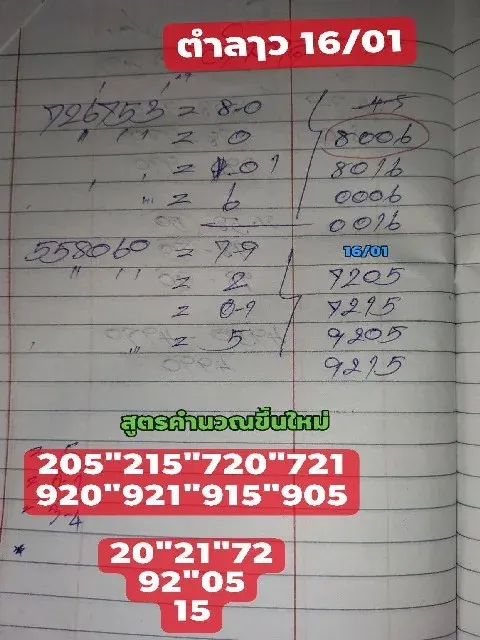 ตำลาว 16/01
726753 = 8-0
" ' ' = 0
= 01
= 6
45
8006
8016
0006
0016
558060 = 7-9
" ' ' = 2
= 0-1
" = 5
16/01
7205
7215
9205
9215
สูตรคำนวณขึ้นใหม่
205"215"720"721
920"921"915"905
3-4
20"21"72
92"05
15